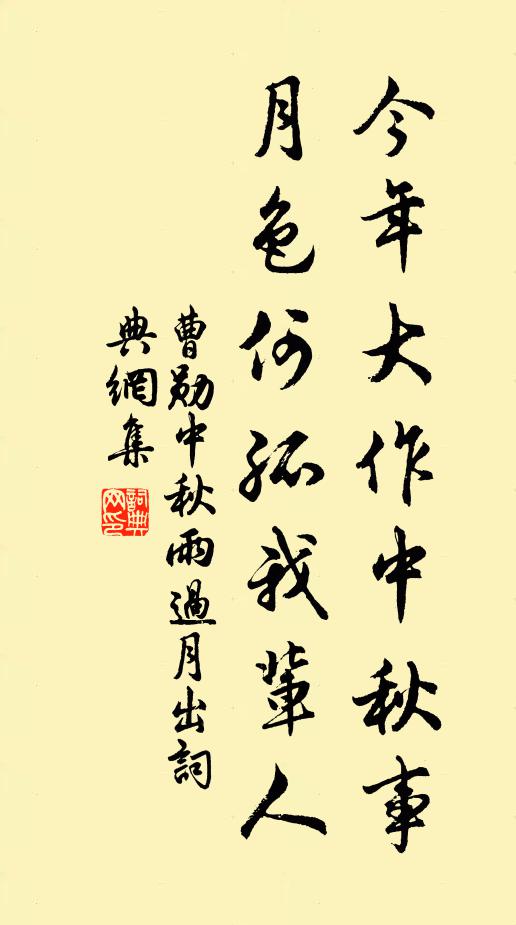 今年大作中秋事
月色何孤我輩人
曹勛中秋雨過月出詞
典網集
詞典
网印